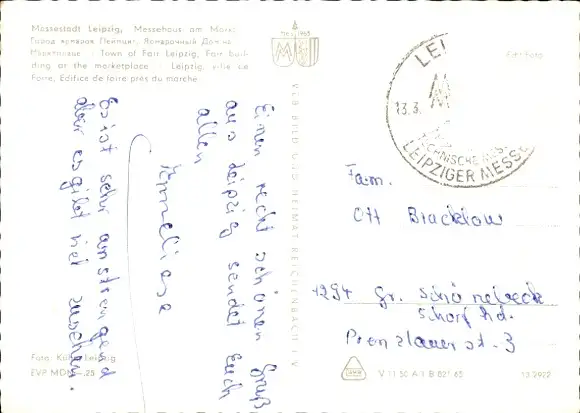 Messestadt Leipzig, Messehaus am Markt
Город ярмарок Лейпциг, Ярмарочный Дом на
Town of Fair Leipzig, Fair buil-
ding at the marketplace Leipzig, ville de
Foire, Edifice de foire près du marché
1965
LEI
13.3.
TECHNISCHE
LEIPZIGER MESSE
VEB BILD UND HEIMAT REICHENBACH I. V.
Einen recht schönen Gruß
aus Leipzig sendet Euch
allen
Anneliese
Es ist sehr anstrengend
aber es gibt viel zu sehen.
Fam.
Ott Bracklow
1294 Gr. Schönebeck
Schorfhd.
Prenzlauer St. 3
Foto: Leipzig
EVP MDN -.25
V 11 50 A 1 B 821 65